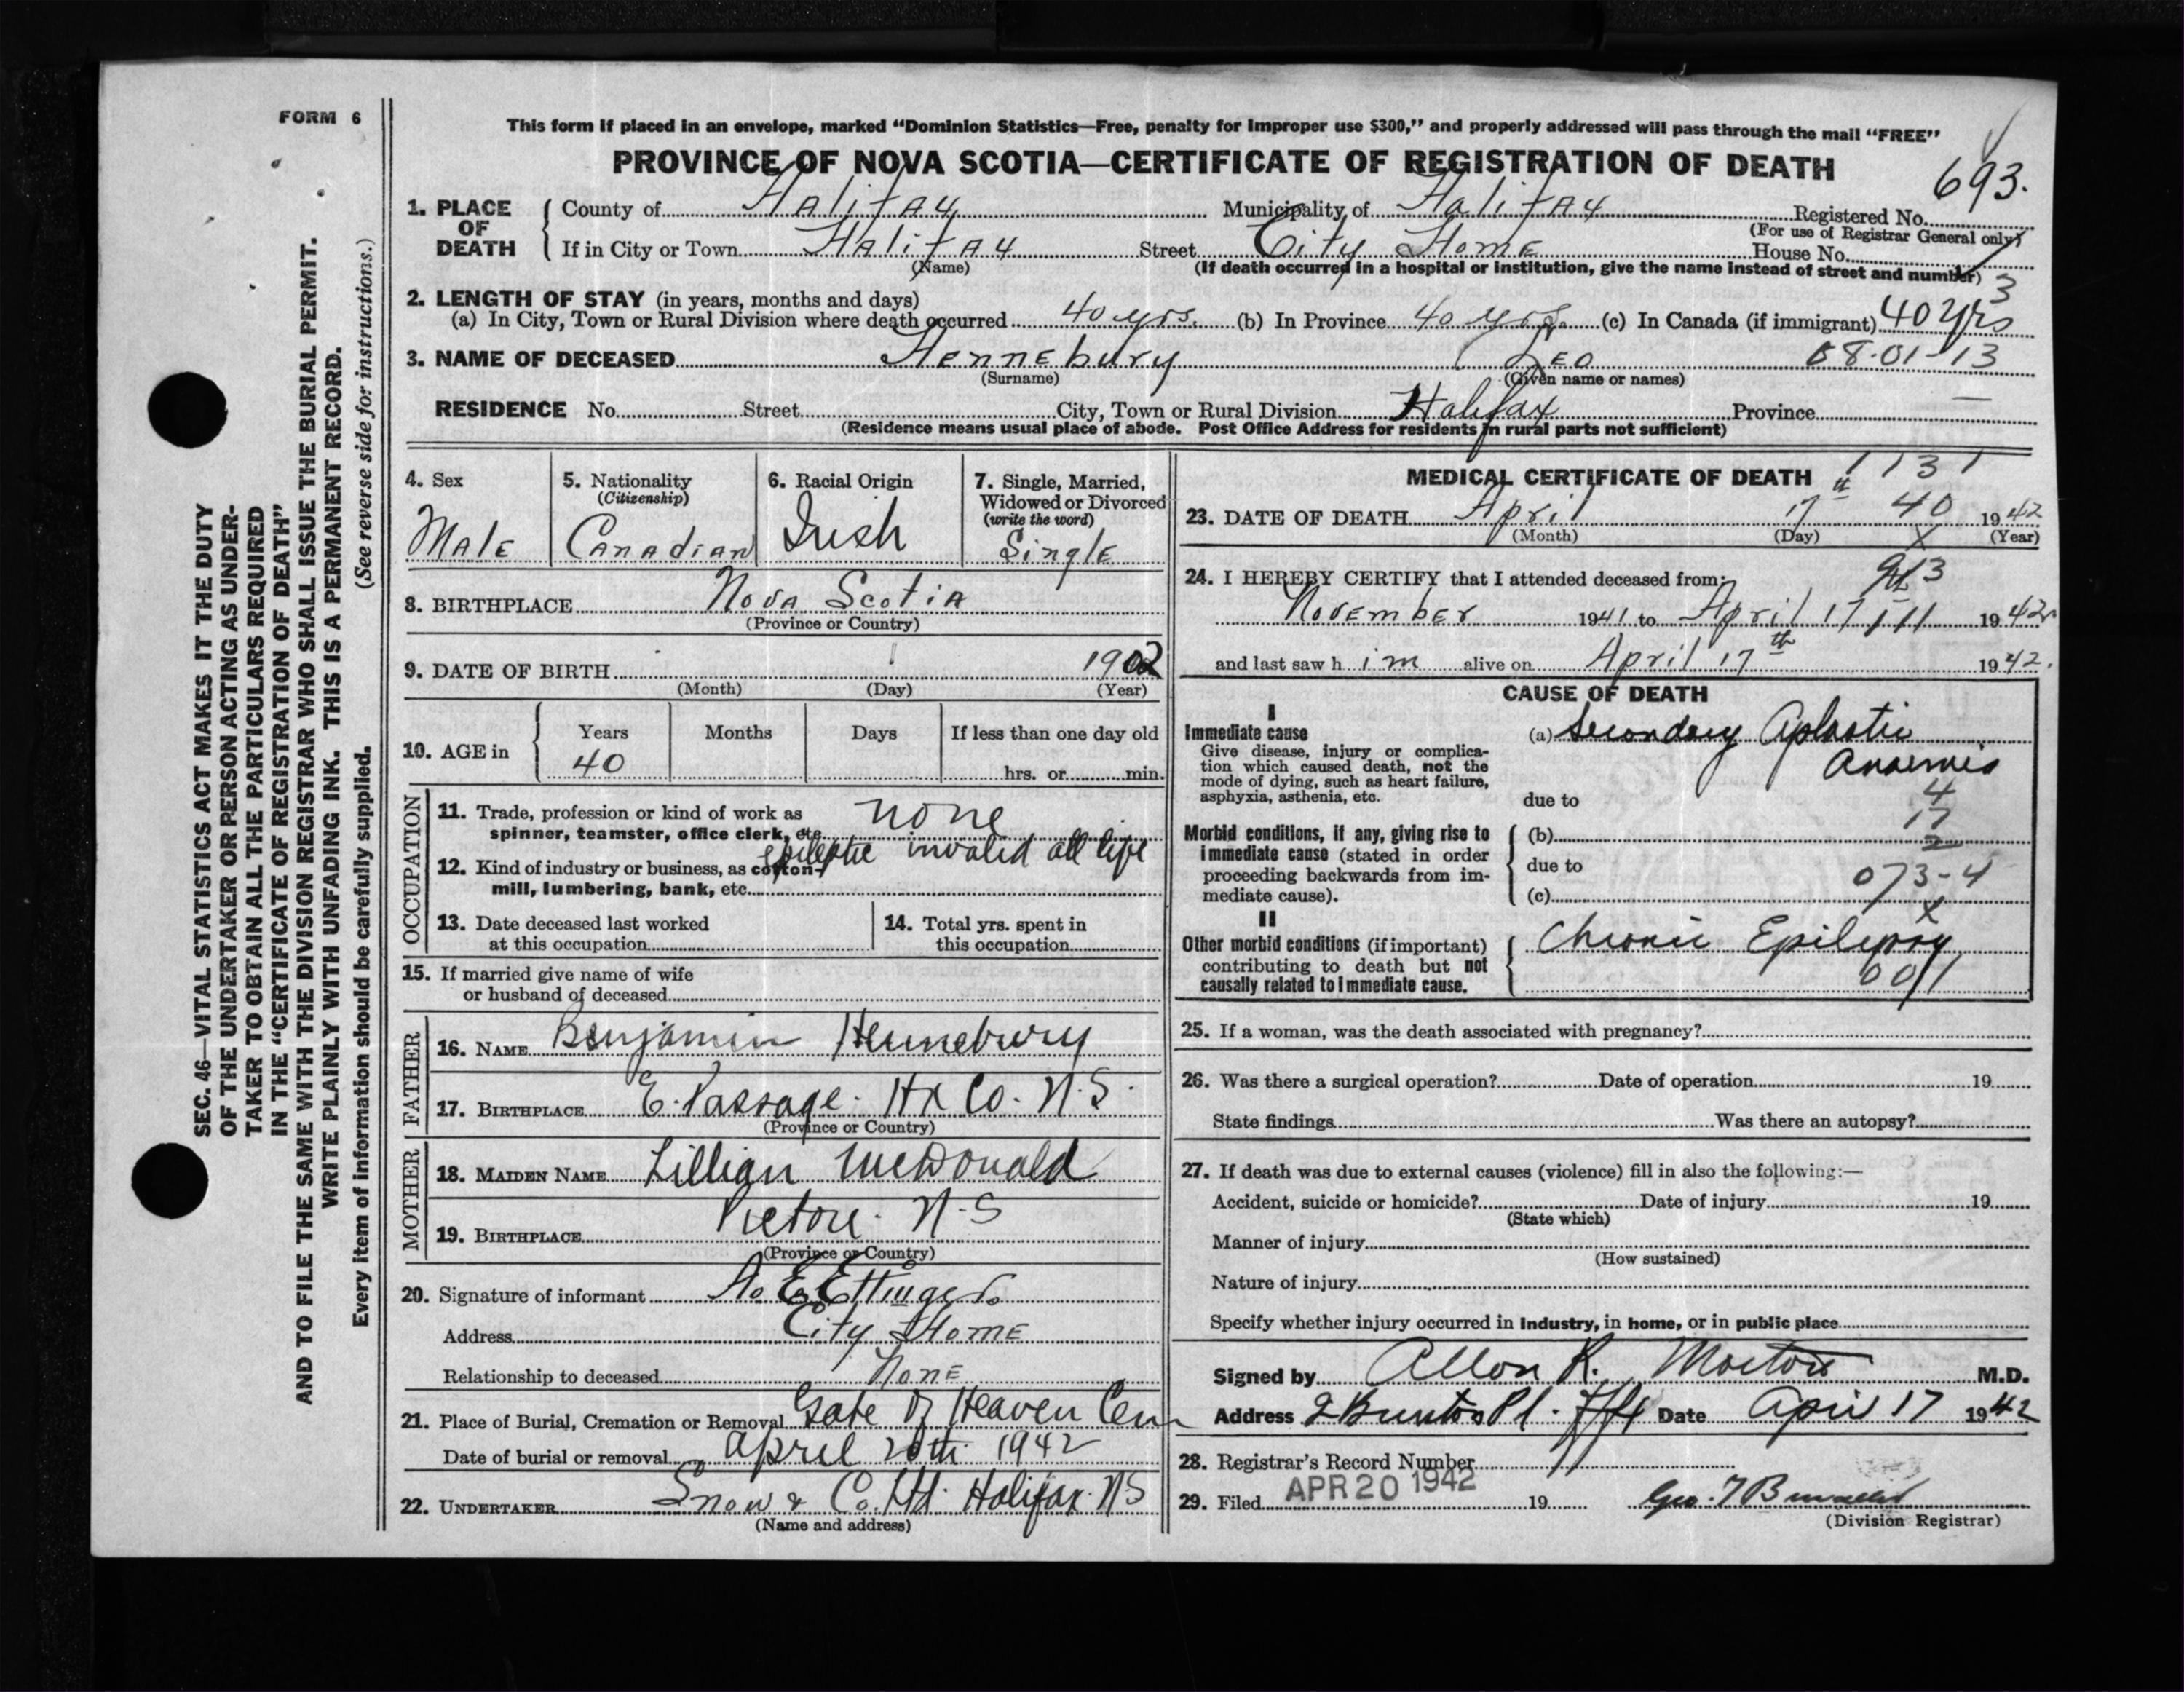 FORM 6
This form if placed in an envelope, marked “Dominion Statistics—Free, penalty for improper use $300,” and properly addressed will pass through the mail “FREE”
PROVINCE OF NOVA SCOTIA—CERTIFICATE OF REGISTRATION OF DEATH
693.
1. PLACE OF DEATH
County of Halifax Municipality of Halifax Registered No.
(For use of Registrar General only)
If in City or Town Halifax Street City Home House No.
(Name) (If death occurred in a hospital or institution, give the name instead of street and number)
3
2. LENGTH OF STAY (in years, months and days)
(a) In City, Town or Rural Division where death occurred 40 yrs. (b) In Province 40 yrs. (c) In Canada (if immigrant) 40 yrs
3. NAME OF DECEASED Hennebury Leo 58-01-13
(Surname) (Given name or names)
RESIDENCE No. Street City, Town or Rural Division Halifax Province
(Residence means usual place of abode. Post Office Address for residents in rural parts not sufficient)
4. Sex
Male
5. Nationality
(Citizenship)
Canadian
6. Racial Origin
Irish
7. Single, Married,
Widowed or Divorced
(write the word)
Single
8. BIRTHPLACE Nova Scotia
(Province or Country)
9. DATE OF BIRTH 1902
(Month) (Day) (Year)
10. AGE in
Years Months Days If less than one day old
40 hrs. or min.
OCCUPATION
11. Trade, profession or kind of work as
spinner, teamster, office clerk, etc. none
epileptic invalid all life
12. Kind of industry or business, as cotton-
mill, lumbering, bank, etc.
13. Date deceased last worked
at this occupation
14. Total yrs. spent in
this occupation
15. If married give name of wife
or husband of deceased
FATHER
16. NAME Benjamin Hennebury
17. BIRTHPLACE E. Passage. Hx Co. N.S.
(Province or Country)
MOTHER
18. MAIDEN NAME Lillian McDonald
19. BIRTHPLACE Pictou. N-S
(Province or Country)
20. Signature of informant A. E. Ettinger
Address City Home
Relationship to deceased None
21. Place of Burial, Cremation or Removal Gate Of Heaven Cem
Date of burial or removal April 20th 1942
22. UNDERTAKER Snow & Co. Ltd. Halifax. NS
(Name and address)
MEDICAL CERTIFICATE OF DEATH
1131
23. DATE OF DEATH April 17th 40 1942
(Month) (Day) (Year)
x
24. I HEREBY CERTIFY that I attended deceased from:
November 1941 to April 17 1942
and last saw h im alive on April 17th 1942.
CAUSE OF DEATH
I
Immediate cause
Give disease, injury or complica-
tion which caused death, not the
mode of dying, such as heart failure,
asphyxia, asthenia, etc.
(a) Secondary Aplastic
Anaemia
due to
4
17
2
Morbid conditions, if any, giving rise to
immediate cause (stated in order
proceeding backwards from im-
mediate cause).
(b)
due to
073-4
(c)
x
II
Other morbid conditions (if important)
contributing to death but not
causally related to immediate cause.
Chronic Epilepsy
001
25. If a woman, was the death associated with pregnancy?
26. Was there a surgical operation? Date of operation 19
State findings Was there an autopsy?
27. If death was due to external causes (violence) fill in also the following:—
Accident, suicide or homicide? Date of injury 19
(State which)
Manner of injury
(How sustained)
Nature of injury
Specify whether injury occurred in industry, in home, or in public place
Signed by Allon R. Morton M.D.
Address Pl. Hfx Date April 17 1942
28. Registrar's Record Number
29. Filed APR 20 1942 19 Geo.
(Division Registrar)
SEC. 46—VITAL STATISTICS ACT MAKES IT THE DUTY
OF THE UNDERTAKER OR PERSON ACTING AS UNDER-
TAKER TO OBTAIN ALL THE PARTICULARS REQUIRED
IN THE “CERTIFICATE OF REGISTRATION OF DEATH”
AND TO FILE THE SAME WITH THE DIVISION REGISTRAR WHO SHALL ISSUE THE BURIAL PERMIT.
WRITE PLAINLY WITH UNFADING INK. THIS IS A PERMANENT RECORD.
Every item of information should be carefully supplied. (See reverse side for instructions.)